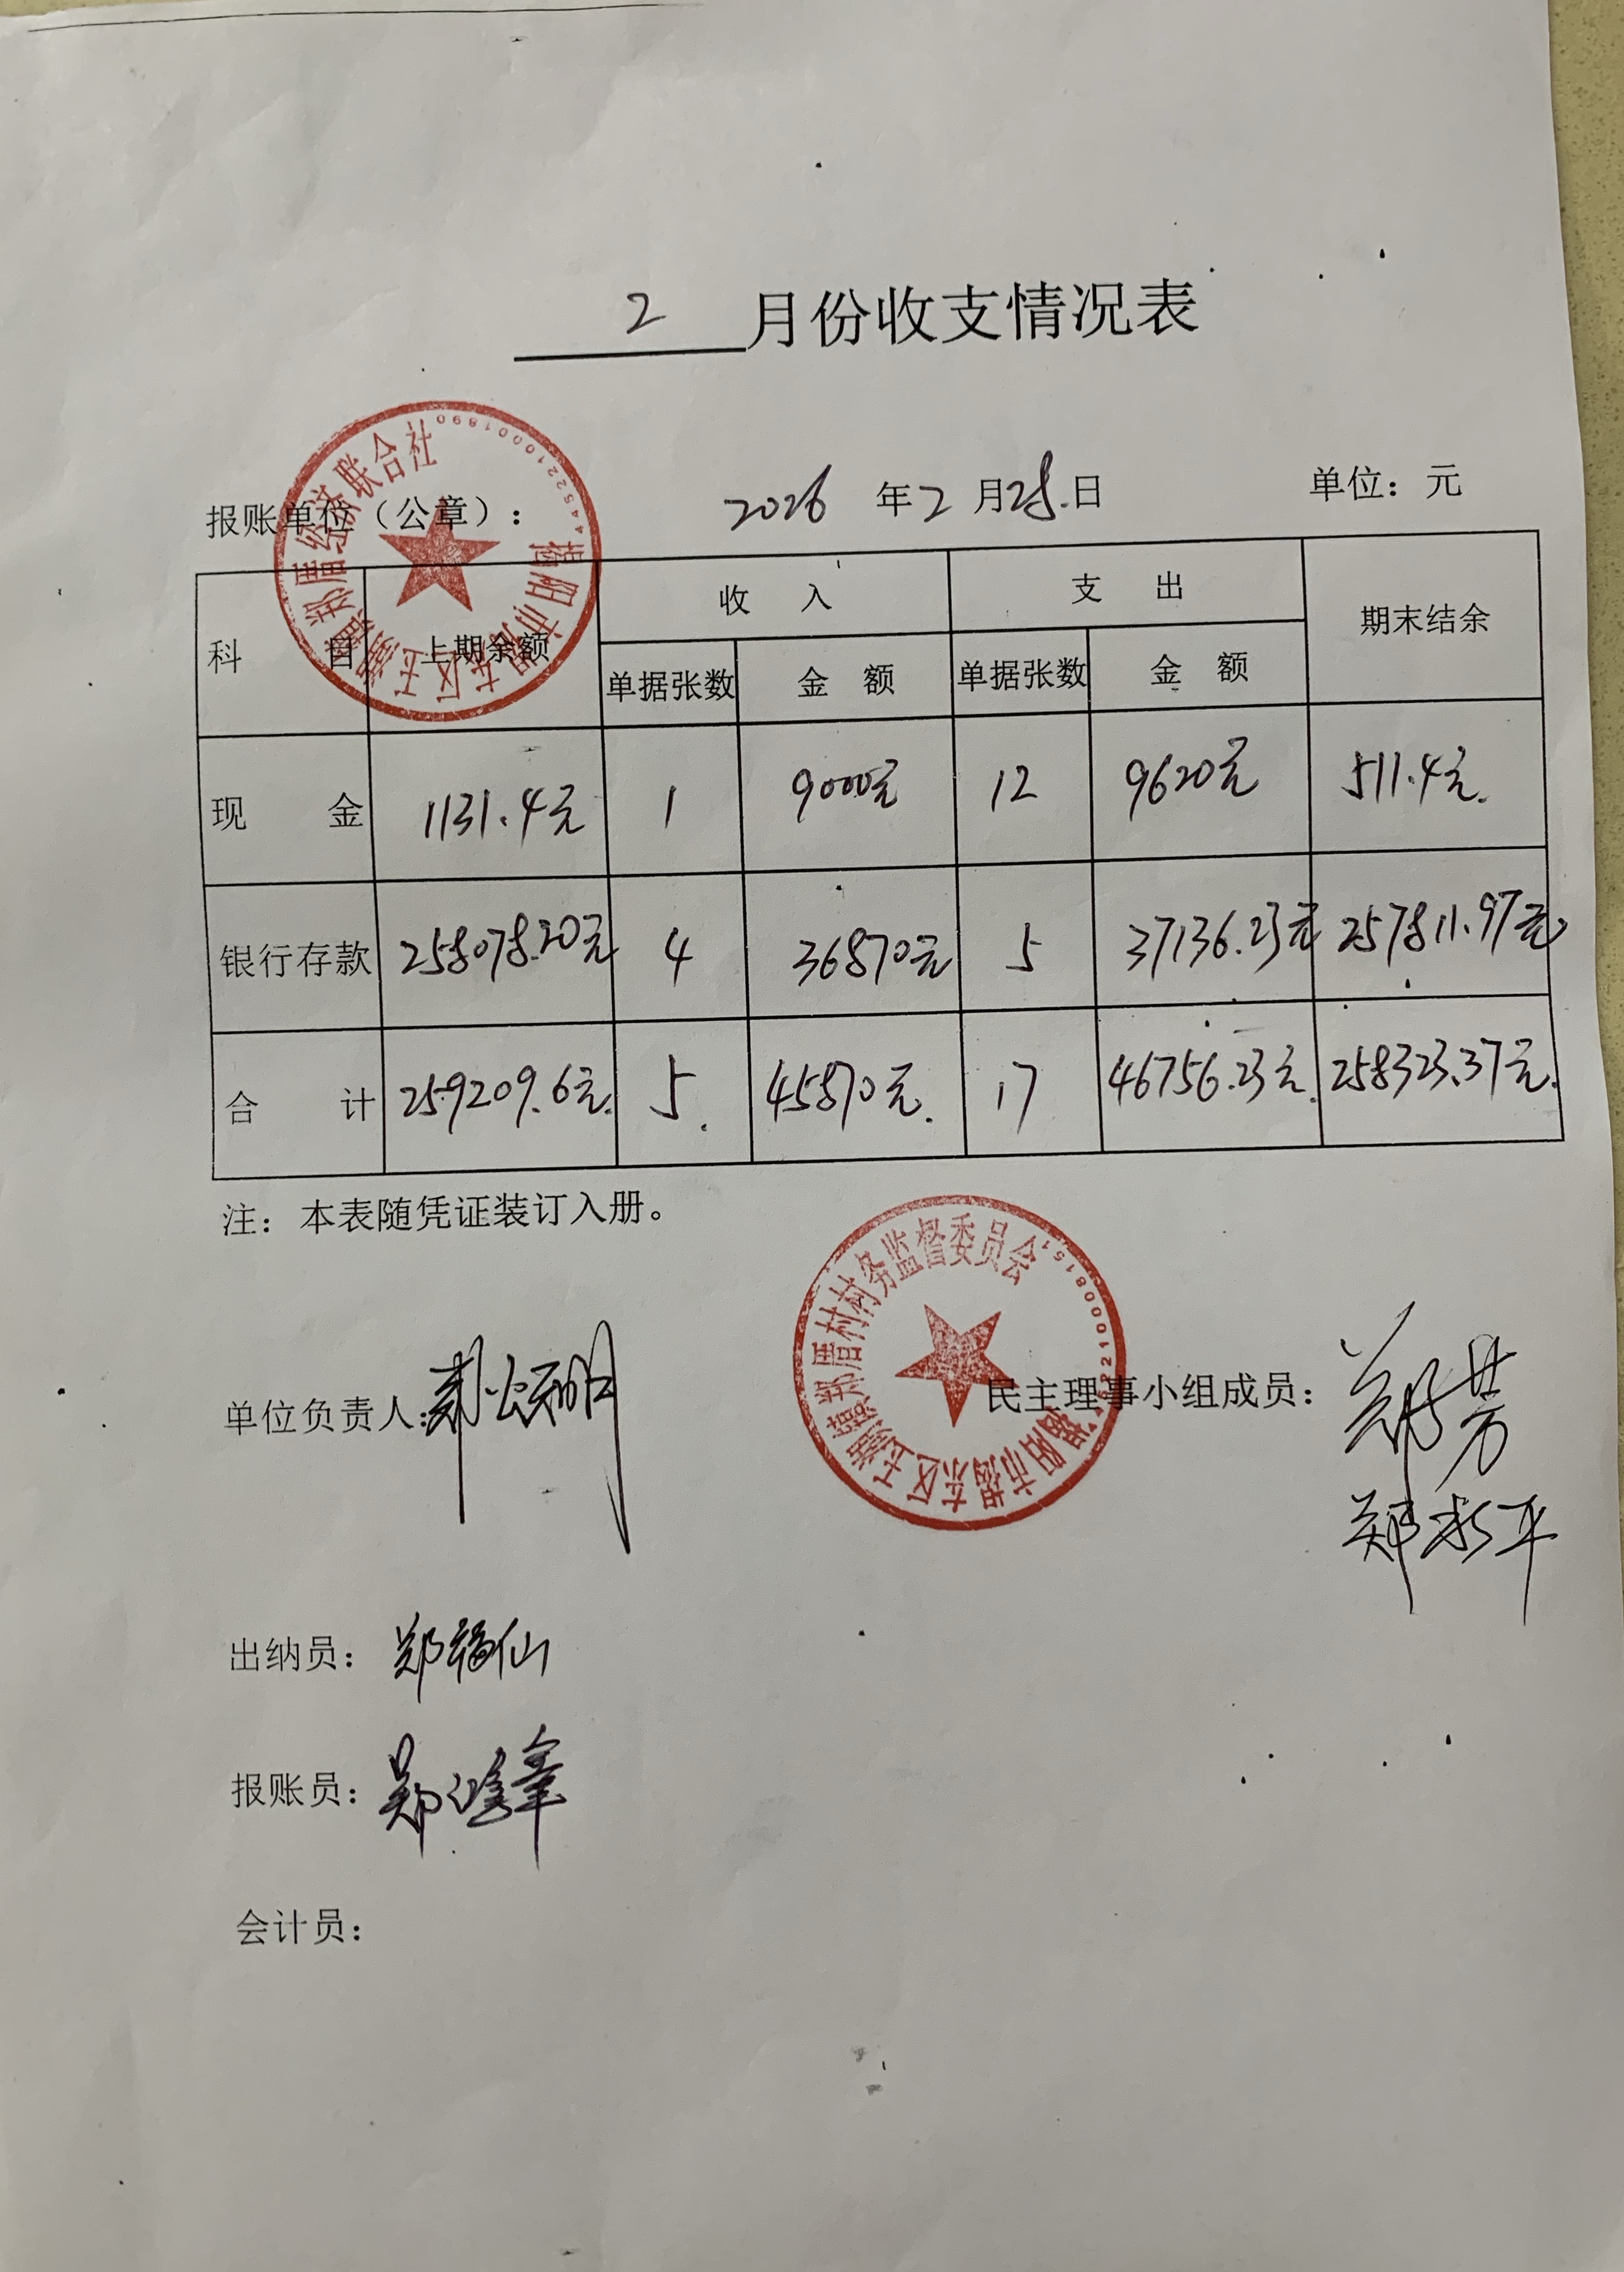 2 月份收支情况表
揭阳市揭东区玉湖镇郑厝经济联合社
4452210001890
报账单位（公章）： 2026 年 2 月 28 日 单位：元
科目 上期余额 收入 支出 期末结余
单据张数 金额 单据张数 金额
现金 1131.4元 1 9000元 12 9620元 511.4元.
银行存款 258078.20元 4 36870元 5 37136.23元 257811.97元
合计 259209.6元. 5. 45870元. 17 46756.23元. 258323.37元.
注：本表随凭证装订入册。
揭阳市揭东区玉湖镇郑厝村村务监督委员会
单位负责人： 民主理事小组成员： 郑芳
郑
出纳员：郑福仙
报账员：郑鸿
会计员：